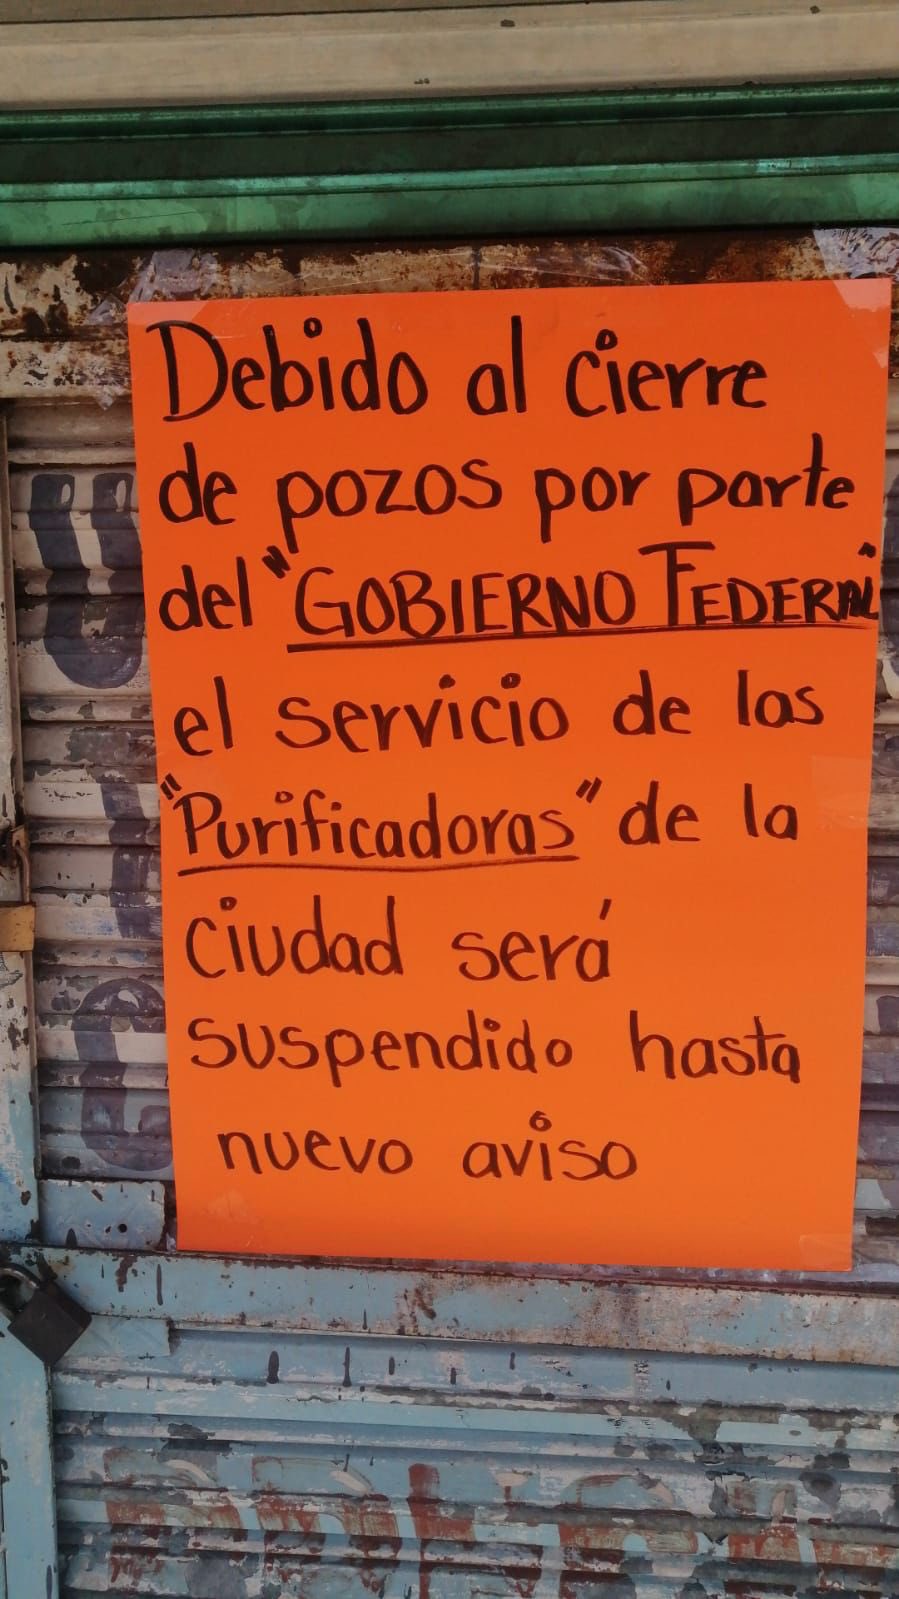 Debido al cierre
de pozos por parte
del "GOBIERNO FEDERAL"
el servicio de las
"Purificadoras" de la
ciudad será
suspendido hasta
nuevo aviso